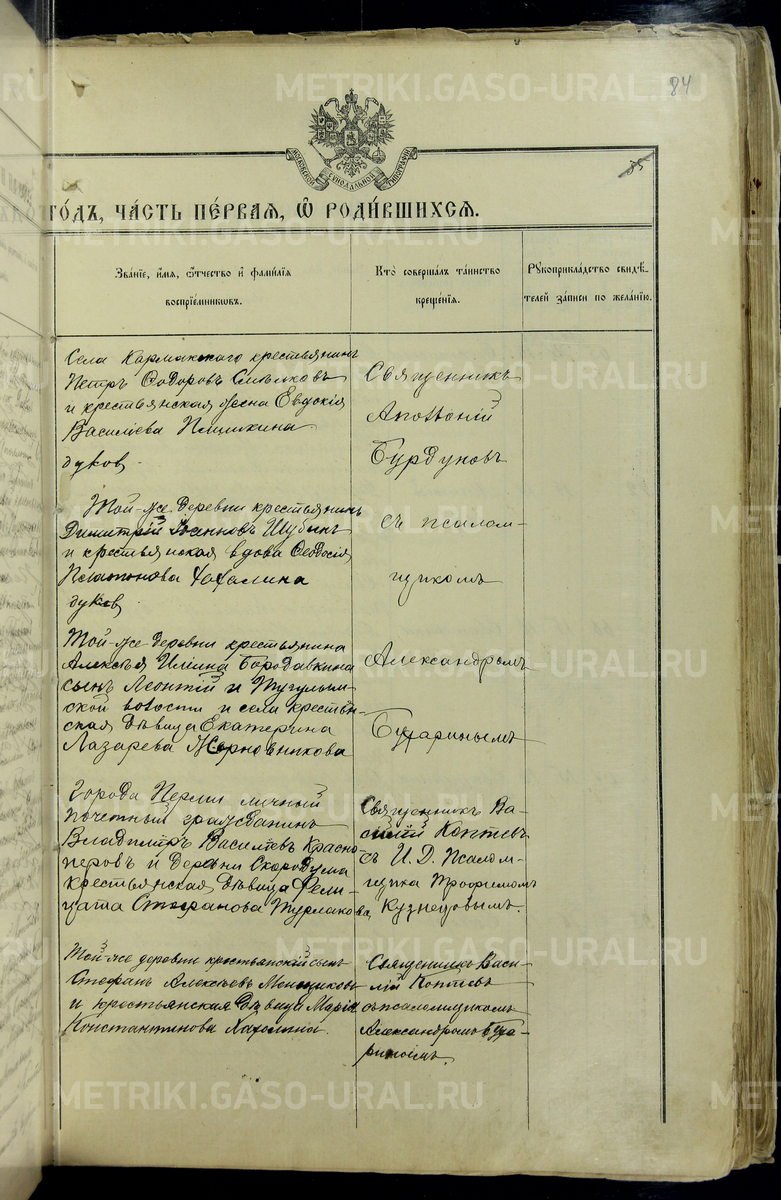 84
85
МОСКОВСКОЙ СѴНОДАЛЬНОЙ ТИПОГРАФІИ
ГО́ДЪ, ЧА́СТЬ ПЕ́РВАЯ, Ѽ РОДИ́ВШИХСЯ.
Зва́нїе, и҆́мя, ѻ҆́тчество и҆ фами́лїя
воспрїе́мниковъ.
Кто̀ соверша́лъ та́инство
креще́нїя.
Рꙋкоприкла́дство свидѣ́-
телей за́писи по жела́нїю.
Села Кармакскаго крестьянинъ
Петръ Ѳодоровъ Смѣлковъ
и крестьянская жена Евдокія
Василіева Пищикина
духов.
Той-же деревни крестьянинъ
Димитрій Іоанновъ Шубинъ
и крестьянская вдова Ѳеодосія
Платонова Хахалина
духов.
Священникъ
Аполлоній
Бурдуковъ
съ псалом-
щикомъ
Той-же деревни крестьянина
Алексѣя Иліина Бородавкина
сынъ Леонтій и Тугулым-
ской волости и села крестьян-
ская дѣвица Екатерина
Лазарева Жерновникова
Александромъ
Бухаринымъ
Города Перми личный
почетный гражданинъ
Владиміръ Василіевъ Красно-
перовъ и деревни Скородума
крестьянская дѣвица Фели-
цата Стефанова Турлакова,
Священникъ Ва-
силій Коптевъ
съ И. Д. Псалом-
щика Трофимомъ
Кузнецовымъ.
Той-же деревни крестьянскій сынъ
Стефанъ Алексѣевъ Менщиковъ
и крестьянская дѣвица Марія
Константинова Хахалина.
Священникъ Васи-
лій Коптевъ
съ псаломщикомъ
Александромъ Буха-
ринымъ.
METRIKI.GASO-URAL.RU